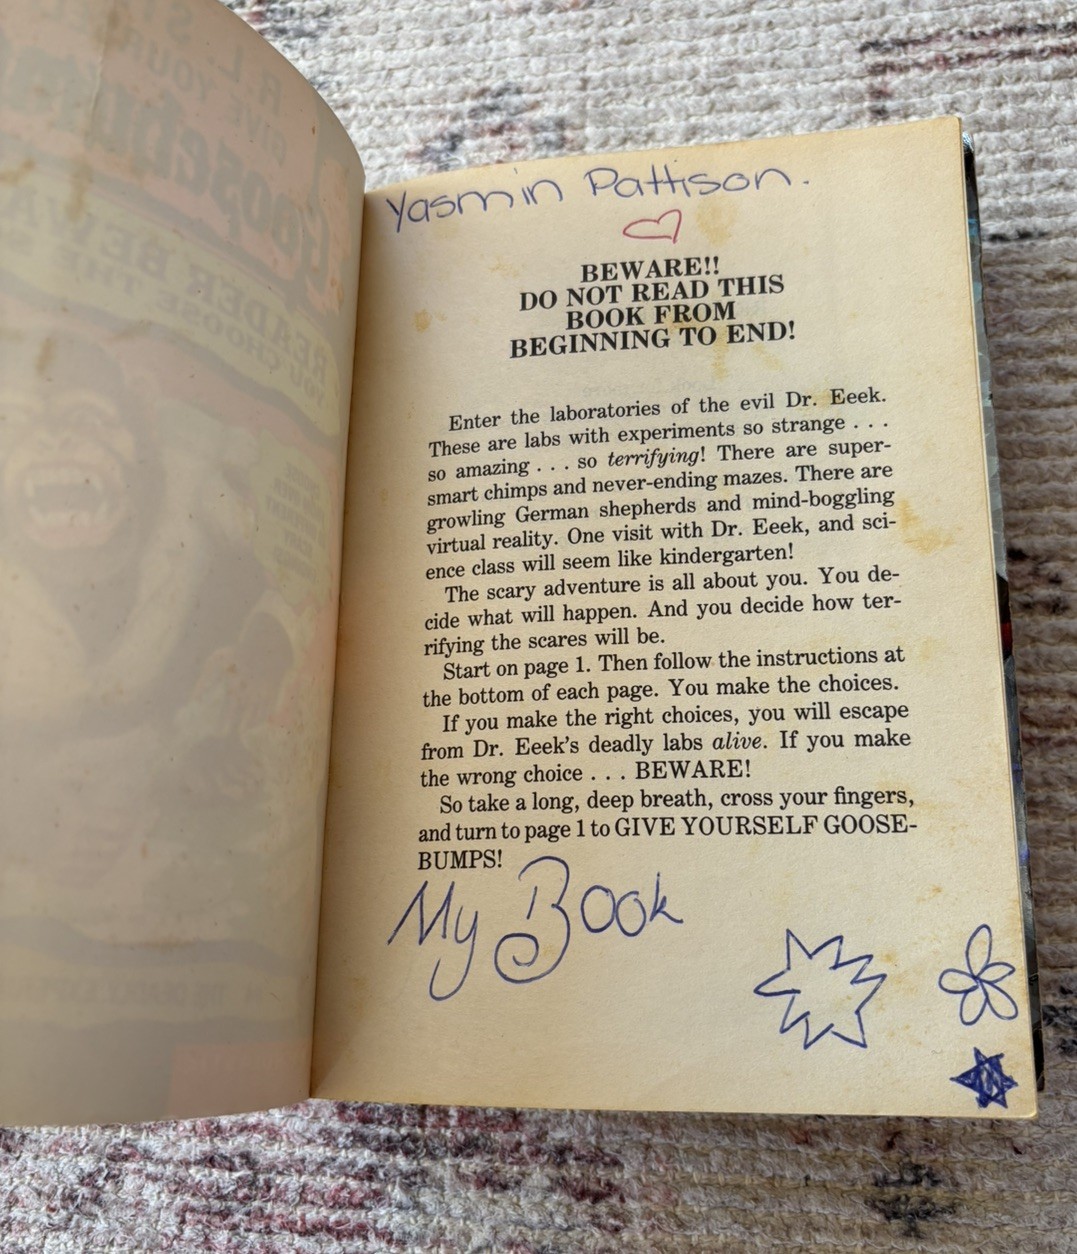 Yasmin Pattison.
BEWARE!!
DO NOT READ THIS
BOOK FROM
BEGINNING TO END!
Enter the laboratories of the evil Dr. Eeek.
These are labs with experiments so strange . . .
so amazing . . . so terrifying! There are super-
smart chimps and never-ending mazes. There are
growling German shepherds and mind-boggling
virtual reality. One visit with Dr. Eeek, and sci-
ence class will seem like kindergarten!
The scary adventure is all about you. You de-
cide what will happen. And you decide how ter-
rifying the scares will be.
Start on page 1. Then follow the instructions at
the bottom of each page. You make the choices.
If you make the right choices, you will escape
from Dr. Eeek's deadly labs alive. If you make
the wrong choice . . . BEWARE!
So take a long, deep breath, cross your fingers,
and turn to page 1 to GIVE YOURSELF GOOSE-
BUMPS!
My Book